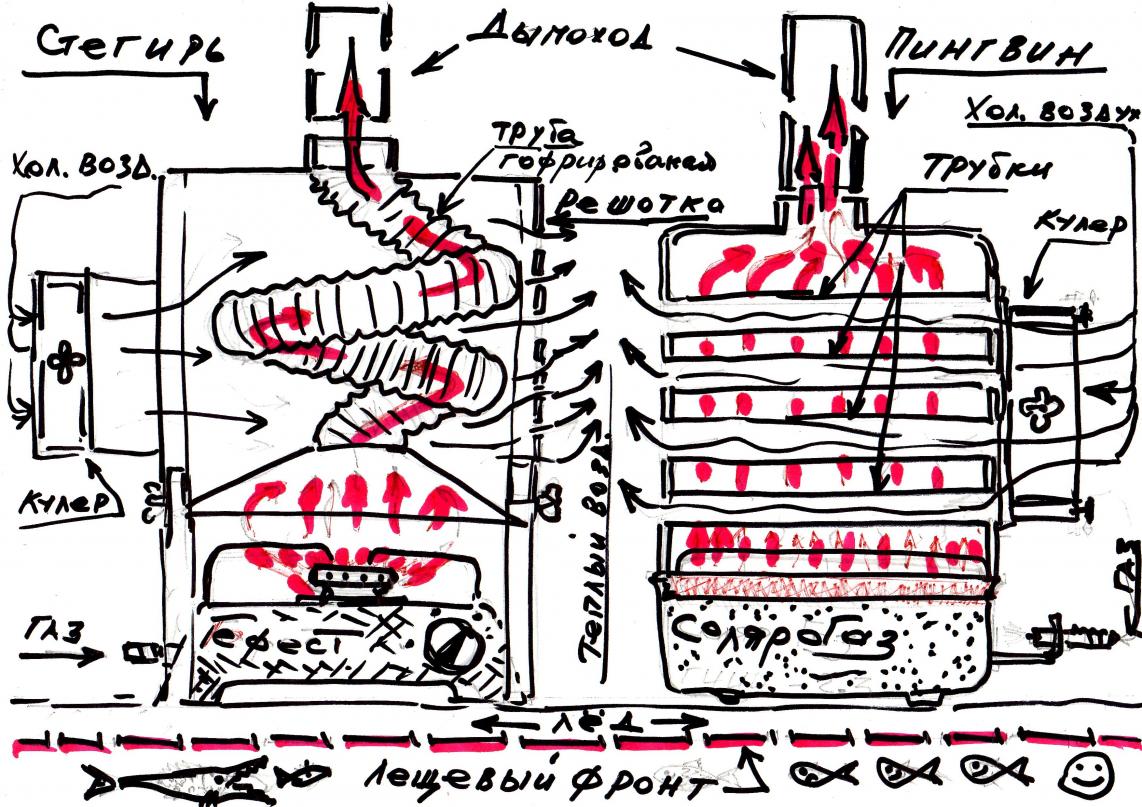 Стегирь
Дымоход
Пингвин
Хол. воздух
труба
гофрированая
Хол. возд.
Решотка
трубки
Кулер
Кулер
Теплый возд.
ГАЗ
ГАЗ
Гефест
СоляроГаз
лёд
Лещевый фронт